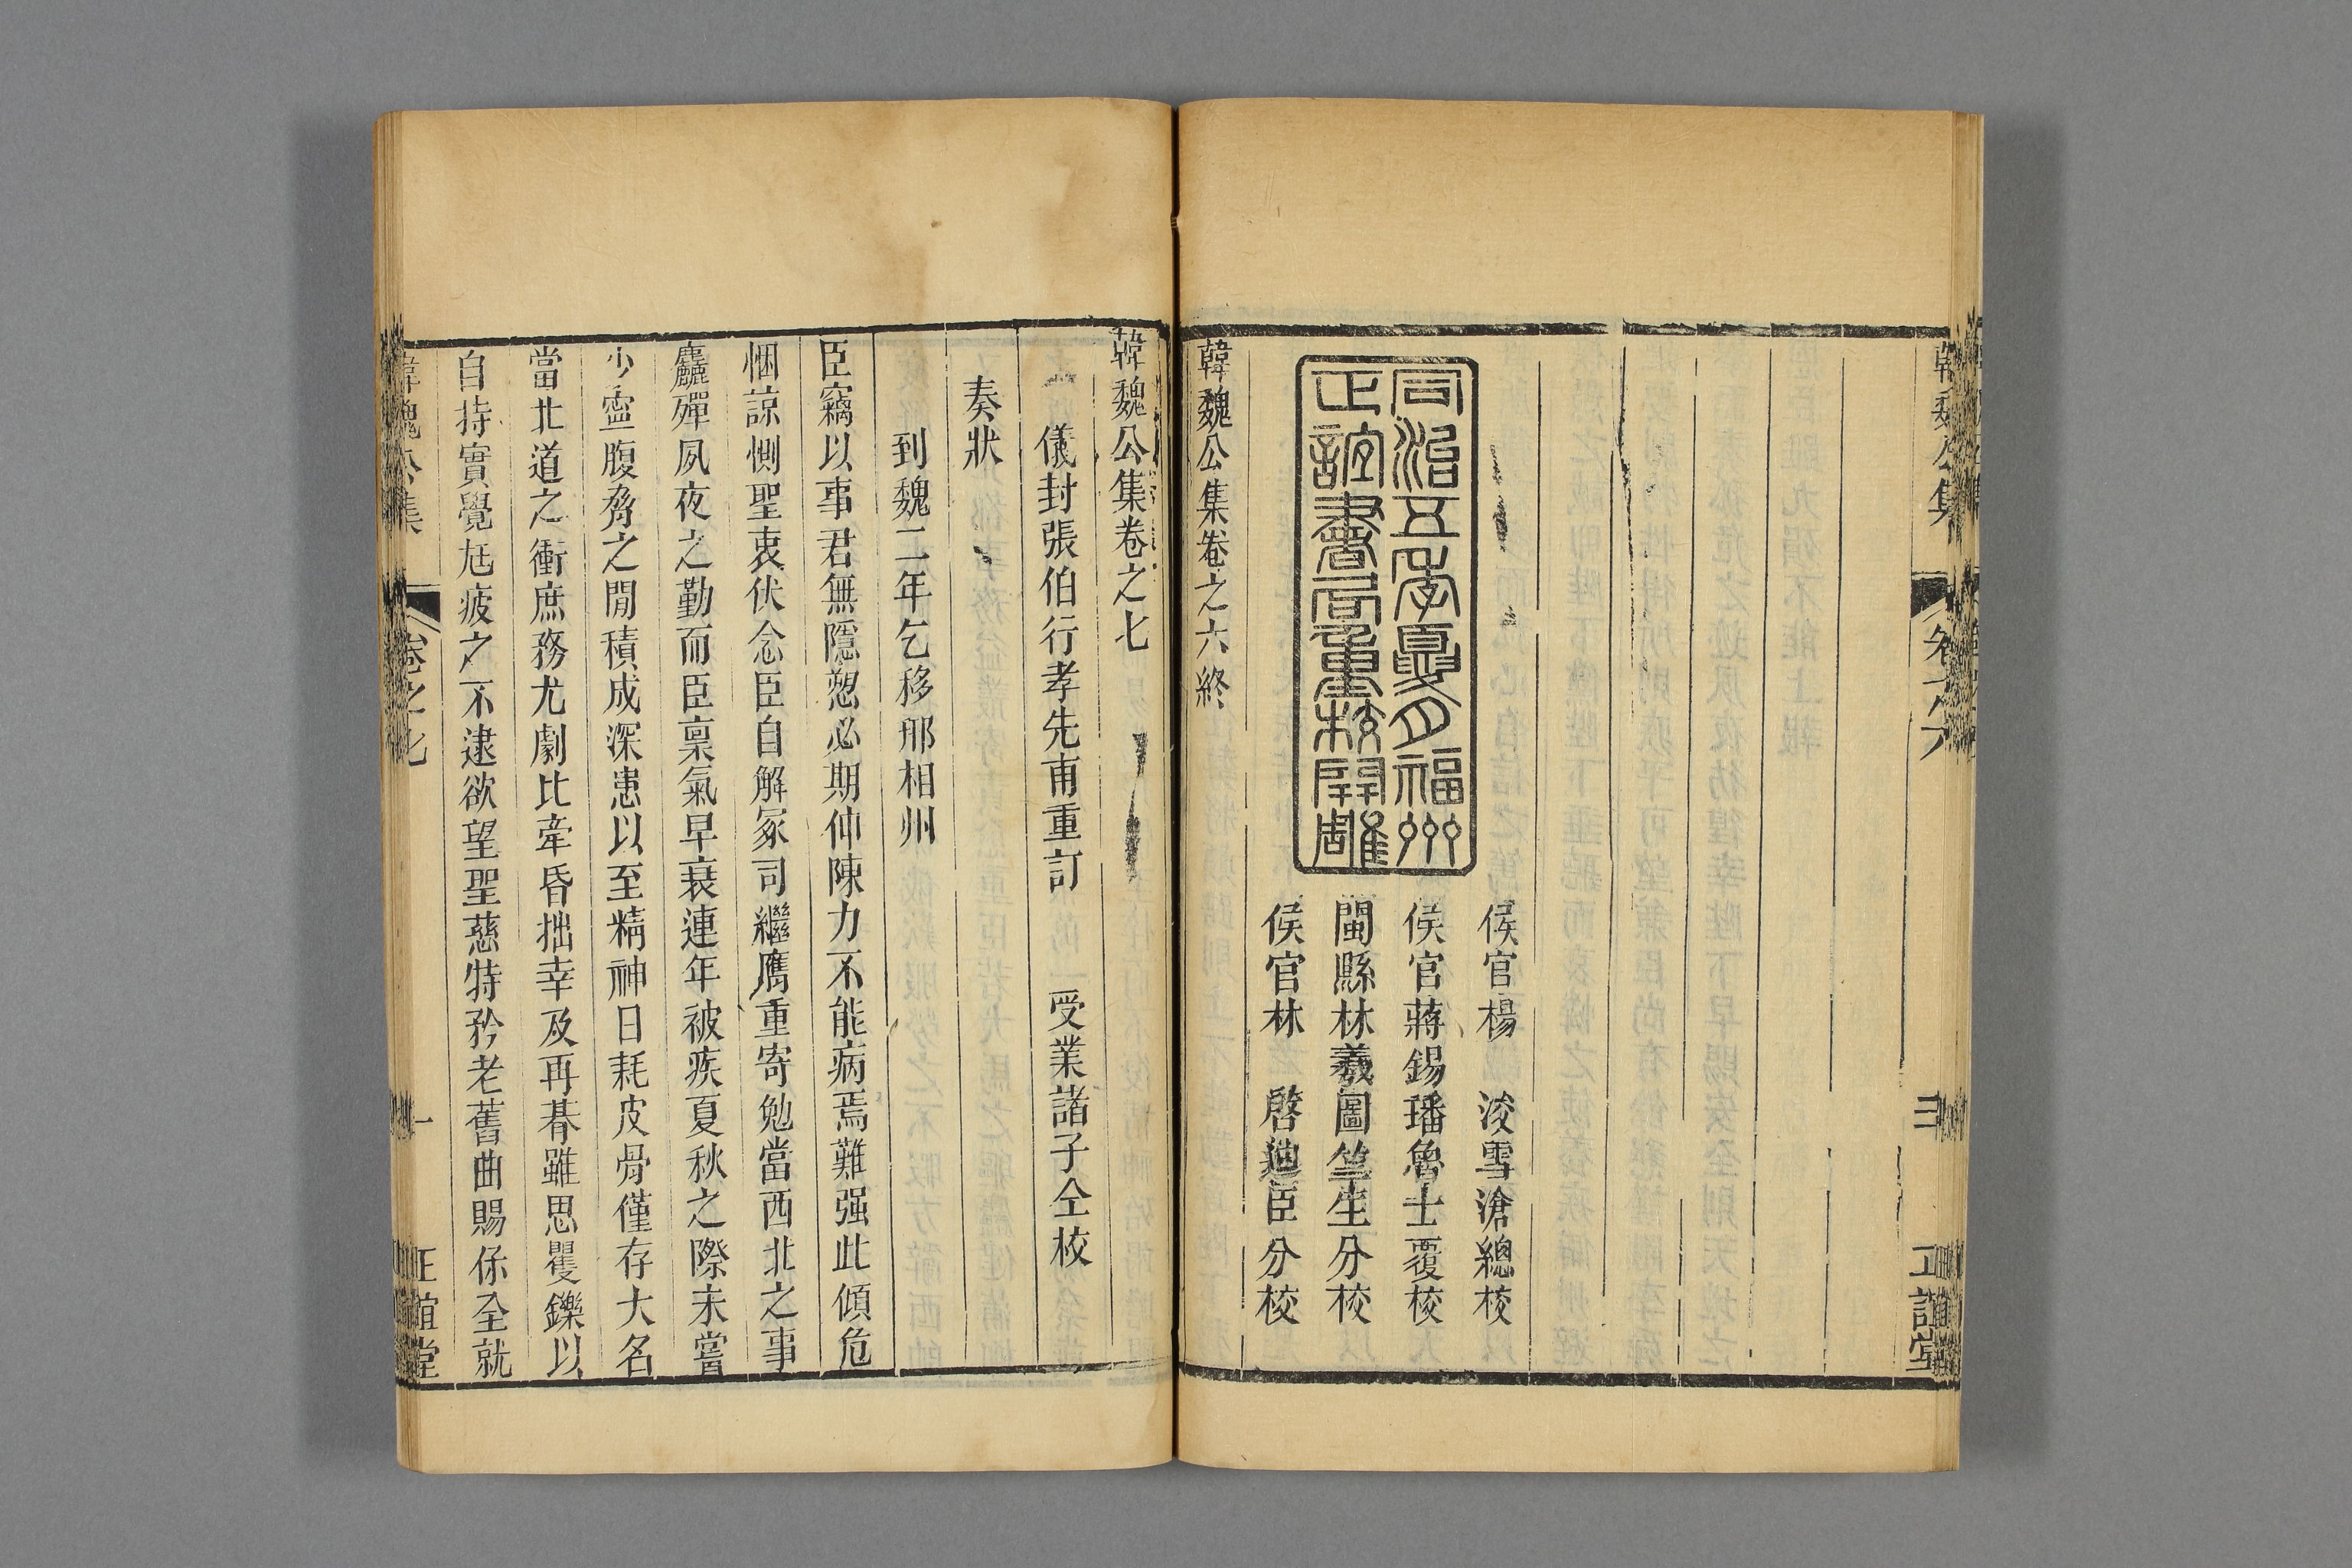 韓魏公集
卷之六
正誼堂
同治五年夏月福州
正誼書局重校開雕
侯官楊 浚雪滄總校
侯官蔣錫璠魯士覆校
閩縣林羲圖竺生分校
侯官林 啓迪臣分校
韓魏公集卷之六終
韓魏公集卷之七
儀封張伯行孝先甫重訂 受業諸子仝校
奏狀
到魏二年乞移邢相州
臣竊以事君無隱愬必期伸陳力不能病焉難强此傾危
悃諒惻聖衷伏念臣自解冢司繼膺重寄勉當西北之事
麤殫夙夜之勤而臣禀氣早衰連年被疾夏秋之際未嘗
少寧腹脅之閒積成深患以至精神日耗皮骨僅存大名
當北道之衝庶務尤劇比牽昏拙幸及再朞雖思矍鑠以
自持實覺尫疲之不逮欲望聖慈特矜老舊曲賜保全就
韓魏公集
卷之七
一
正誼堂